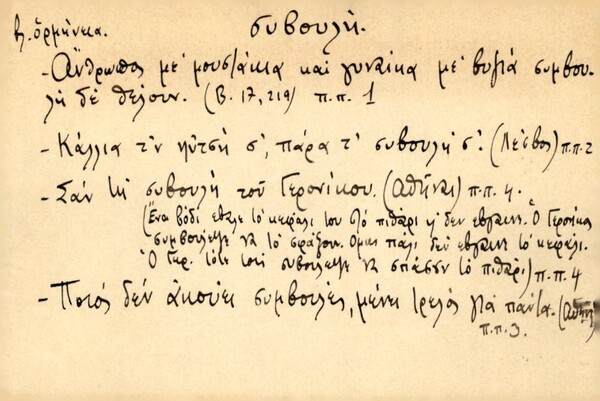 βλ. ὁρμήνεια.
συβουλή.
- Ἄνθρωπος μὲ μουστάκια καὶ γυναῖκα μὲ βυζιά συμβου-
λὴ δὲ θέλουν. (Β. 17, 219) π.π. 1
- Κάλλια τ'ν σ', πάρα τ' συβουλή σ'. (Λέσβος) π.π. 2
- Σάν τὴ συβουλὴ τοῦ Γερονίκου. (Ἀθῆναι) π.π. 4.
(Ἕνα βόδι ἔβαλε τὸ κεφάλι του στὸ πιθάρι κ' δὲν ἔβγαινε. Ὁ Γερονίκος
συμβούλεψε νὰ τὸ σφάξουν. Ὅμως πάλι δὲν ἔβγαινε τὸ κεφάλι.
Ὁ Γερ. τότε τοὺς συβούλεψε νὰ σπάσουν τὸ πιθάρι.) π.π. 4
- Ποιός δέν ἀκούει συμβουλές, μένει τρελός γιὰ πάντα. (Ἀθῆν
π.π. 3.